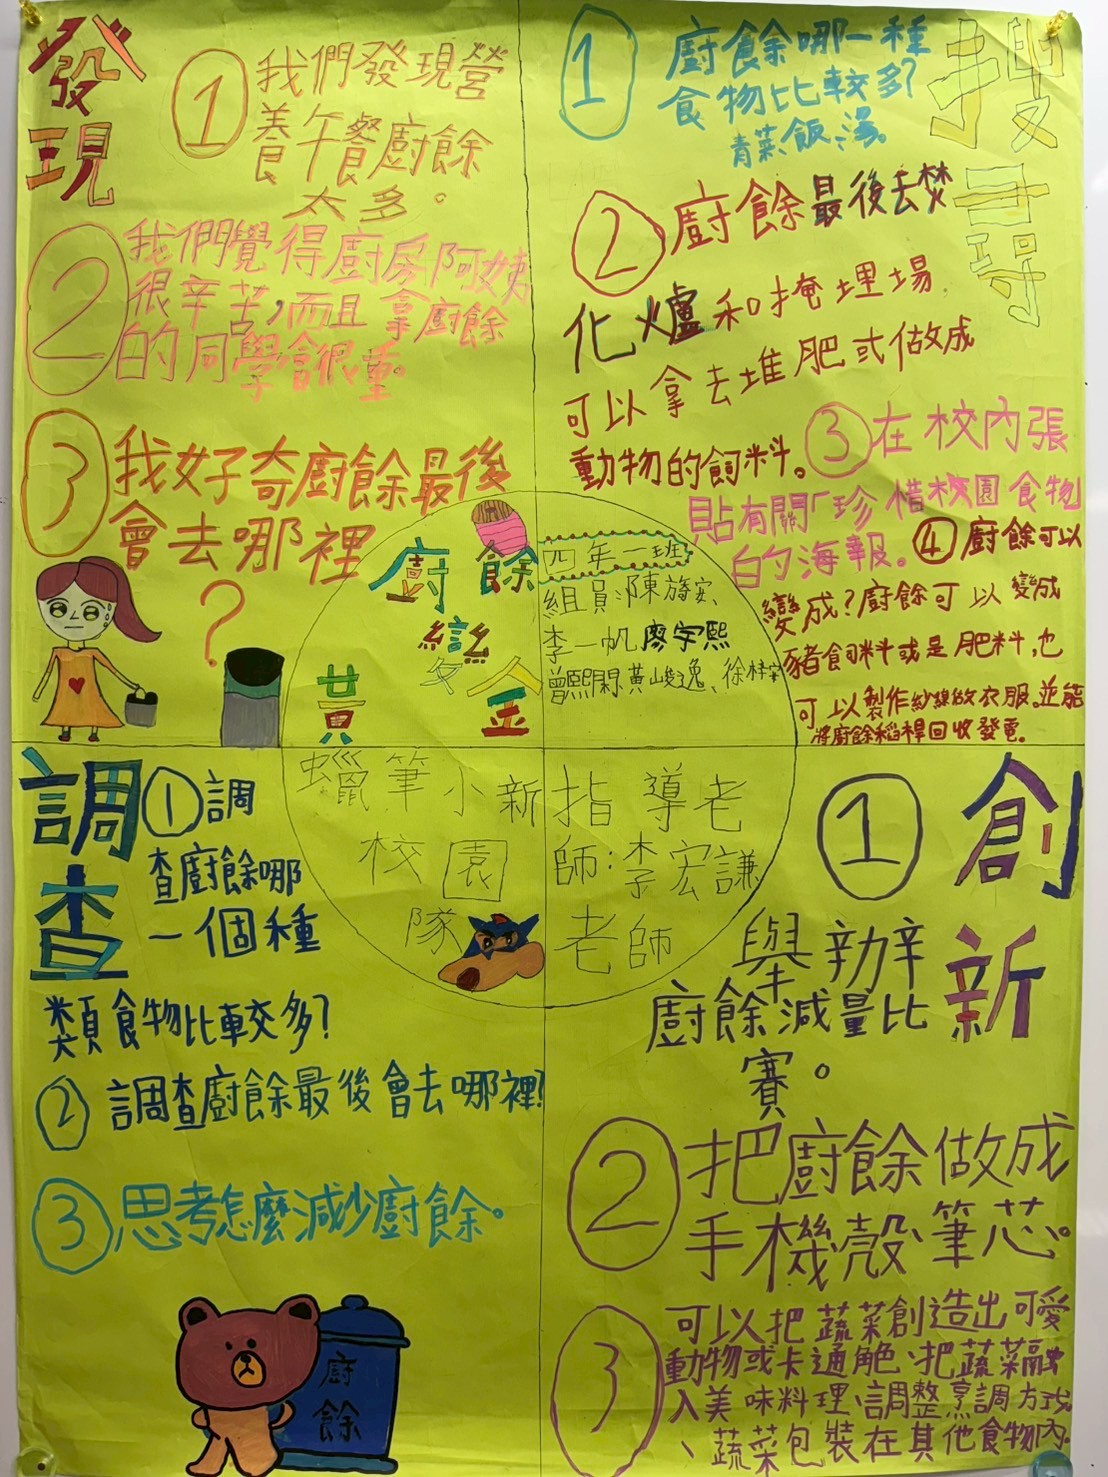 發現
①我們發現營
養午餐廚餘
太多。
②我們覺得廚房阿姨
很辛苦,而且拿廚餘
的同學會很重。
③我好奇廚餘最後
會去哪裡
?
搜尋
①廚餘哪一種
食物比較多?
青菜、飯、湯。
②廚餘最後去焚
化爐和掩埋場
可以拿去堆肥或做成
動物的飼料。
③在校內張
貼有關「珍惜校園食物
的海報。
④廚餘可以
變成?廚餘可以變成
豬飼料或是肥料,也
可以製作紗線做衣服。並能
將廚餘稻稈回收發電。
廚餘
變
黃金
四年一班
組員:陳旖安、
李一帆廖宇熙
曾熙閎黃峻逸、徐梓安
蠟筆小新
校園
隊
指導老
師:李宏謙
老師
調查
①調
查廚餘哪
一個種
類食物比較多?
②調查廚餘最後會去哪裡!
③思考怎麼減少廚餘。
廚餘
創新
①
舉辦
廚餘減量比
賽。
②把廚餘做成
手機殼、筆芯。
③可以把蔬菜創造出可愛
動物或卡通角色、把蔬菜融
入美味料理、調整烹調方式
、蔬菜包裝在其他食物內。